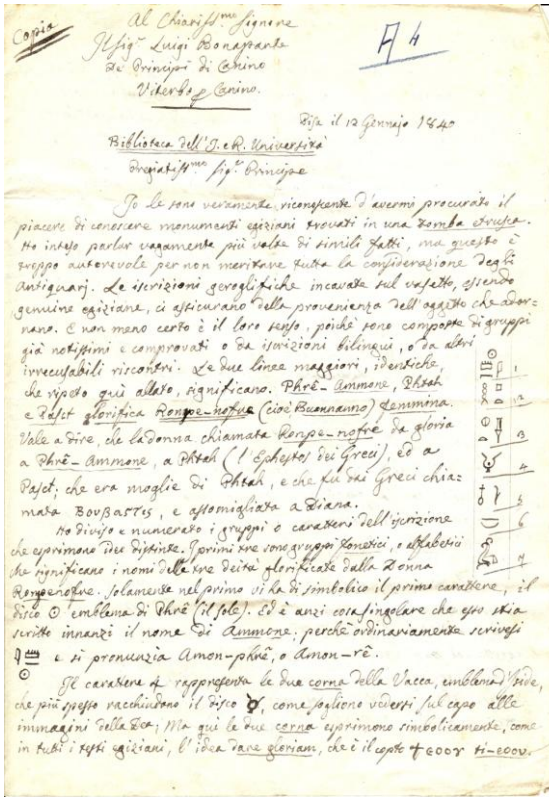 Copia
Al Chiariss.mo Signore
Il Sig.r Luigi Bonaparte
De Principi di Canino
Viterbo p Canino.
A 4
Pisa il 12 Gennajo 1840
Biblioteca dell'I. e R. Università
Pregiatiss.mo Sig.r Principe
Io le sono veramente riconoscente d'avermi procurato il
piacere di conoscere monumenti egiziani trovati in una tomba etrusca.
Ho inteso parlar vagamente più volte di simili fatti, ma questo è
troppo autorevole per non meritare tutta la considerazione degli
Antiquarj. Le iscrizioni geroglifiche incavate sul vasetto, essendo
genuine egiziane, ci assicurano della provenienza dell'oggetto che ador-
nano. E non meno certo è il loro senso, poichè sono composte di gruppi
già notissimi e comprovati o da iscrizioni bilingui, o da altri
irrecusabili riscontri. Le due linee maggiori, identiche,
che ripeto quì allato, significano. Phrê-Ammone, Phtah
e Pasct glorifica Rompe-nofre (cioè Buonanno) femmina.
Vale a dire, che la donna chiamata Ronpe-nofrê da gloria
a Phrê-Ammone, a Phtah (l'Ephestos dei Greci), ed a
Pasct; che era moglie di Phtah, e che fu dai Greci chia-
mata Βουβαστις, e assomigliata a Diana.
1
2
3
4
5
6
7
Ho diviso e numerato i gruppi o caratteri dell'iscrizione
che esprimono idee distinte. I primi tre sono gruppi fonetici, o alfabetici
che significano i nomi delle tre deità glorificate dalla Donna
Rompenofre. Solamente nel primo vi ha di simbolico il primo carattere, il
disco ☉ emblema di Phrê (il sole). Ed è anzi cosa singolare che esso stia
scritto innanzi il nome di Ammone, perchè ordinariamente scrivesi
e si pronunzia Amon-phrê, o Amon-rê.
Il carattere 4 rappresenta le due corna della Vacca, emblema d'Iside,
che più spesso racchiudono il disco, come sogliono vedersi sul capo alle
immagini della Dea; Ma quì le due corna esprimono simbolicamente, come
in tutti i testi egiziani, l'idea dare gloriam, che è il copto ϯⲉⲟⲟⲩ ti-eoou.